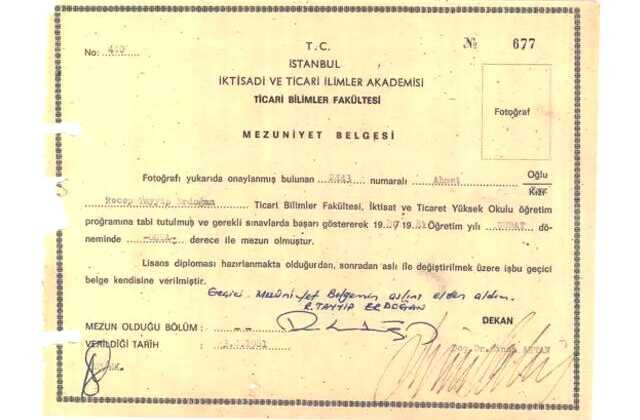 T. C.
No: № 677
İSTANBUL
İKTİSADİ VE TİCARİ İLİMLER AKADEMİSİ
TİCARİ BİLİMLER FAKÜLTESİ
Fotoğraf
MEZUNİYET BELGESİ
Fotoğrafı yukarıda onaylanmış bulunan 2443 numaralı Ahmet Oğlu
Kızı
Recep Tayyip Erdoğan Ticari Bilimler Fakültesi, İktisat ve Ticaret Yüksek Okulu öğretim
programına tabi tutulmuş ve gerekli sınavlarda başarı göstererek 1980 1981 Öğretim yılı ŞUBAT dö-
neminde derece ile mezun olmuştur.
Lisans diploması hazırlanmakta olduğundan, sonradan aslı ile değiştirilmek üzere işbu geçici
belge kendisine verilmiştir.
Geçici Mezuniyet Belgemin aslını elden aldım.
R. TAYYİP ERDOĞAN
MEZUN OLDUĞU BÖLÜM : --
DEKAN
VERİLDİĞİ TARİH :
Doç. Dr.